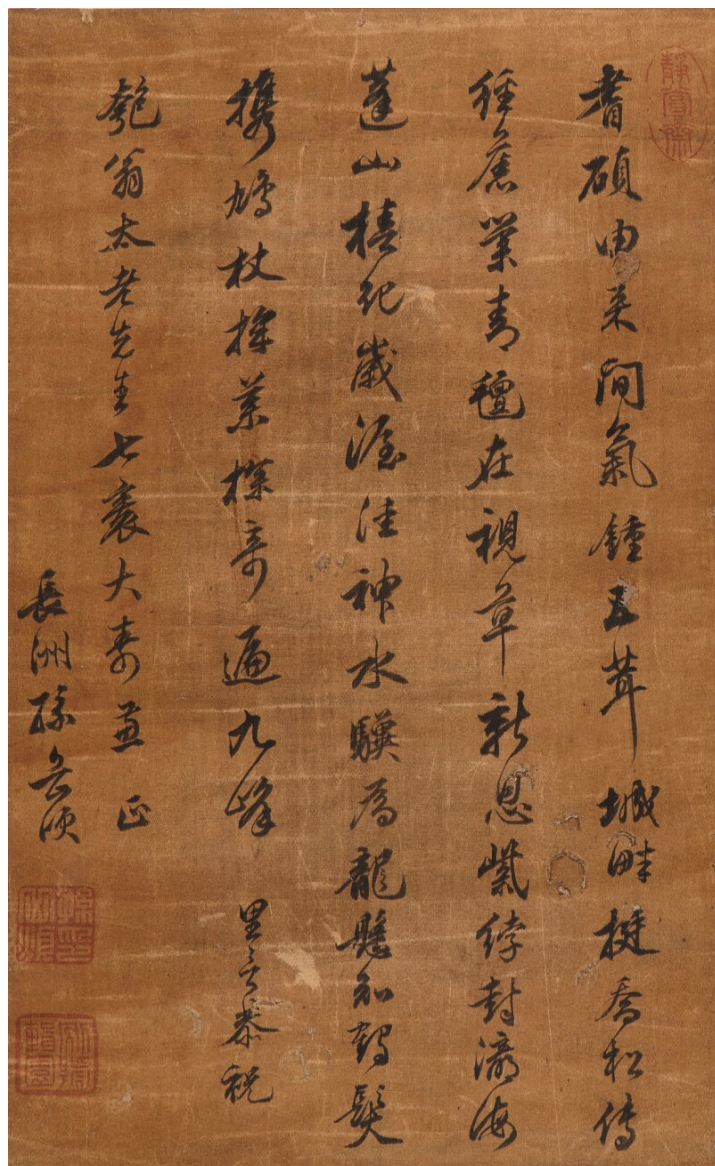 耆碩由来間氣鍾五茸城畔挺喬松傳
經舊業青氊在視草新恩紫綍封瀛海
蓬山椿紀歲渥洼神水驥為龍懸知鶴髮
携鳩杖採藥探奇遍九峰 里言恭祝
匏翁太老先生七袠大壽並正
長洲孫岳頒